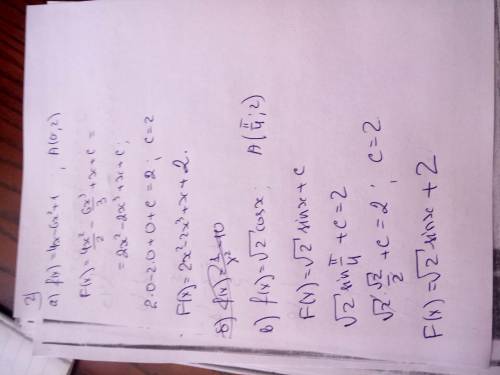 2)
а) f(x)=4x-6x²+1 ; A(0;2)
F(x)= 4x²/2 - 6x³/3 +x+c =
=2x²-2x³+x+c;
2·0-2·0+0+c=2; c=2
F(x)=2x²-2x³+x+2.
в) f(x)=√2 cosx; A(π/4; 2)
F(x)=√2 sinx+c
√2 sin π/4 +c=2
√2·√2/2 +c=2; c=2
F(x)=√2 sinx+2